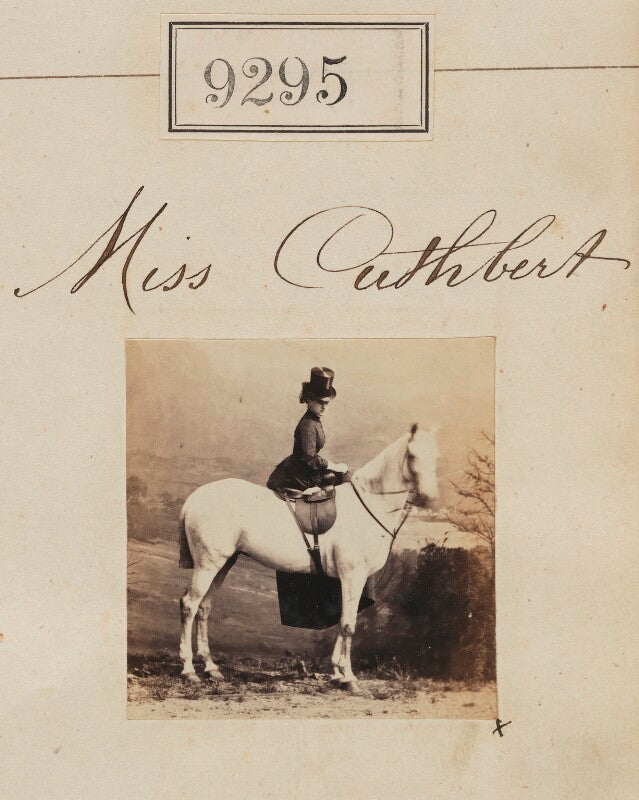 9295
Miss Cuthbert
x